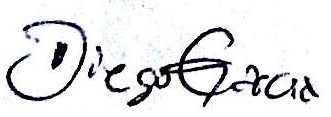 Diego Garcia